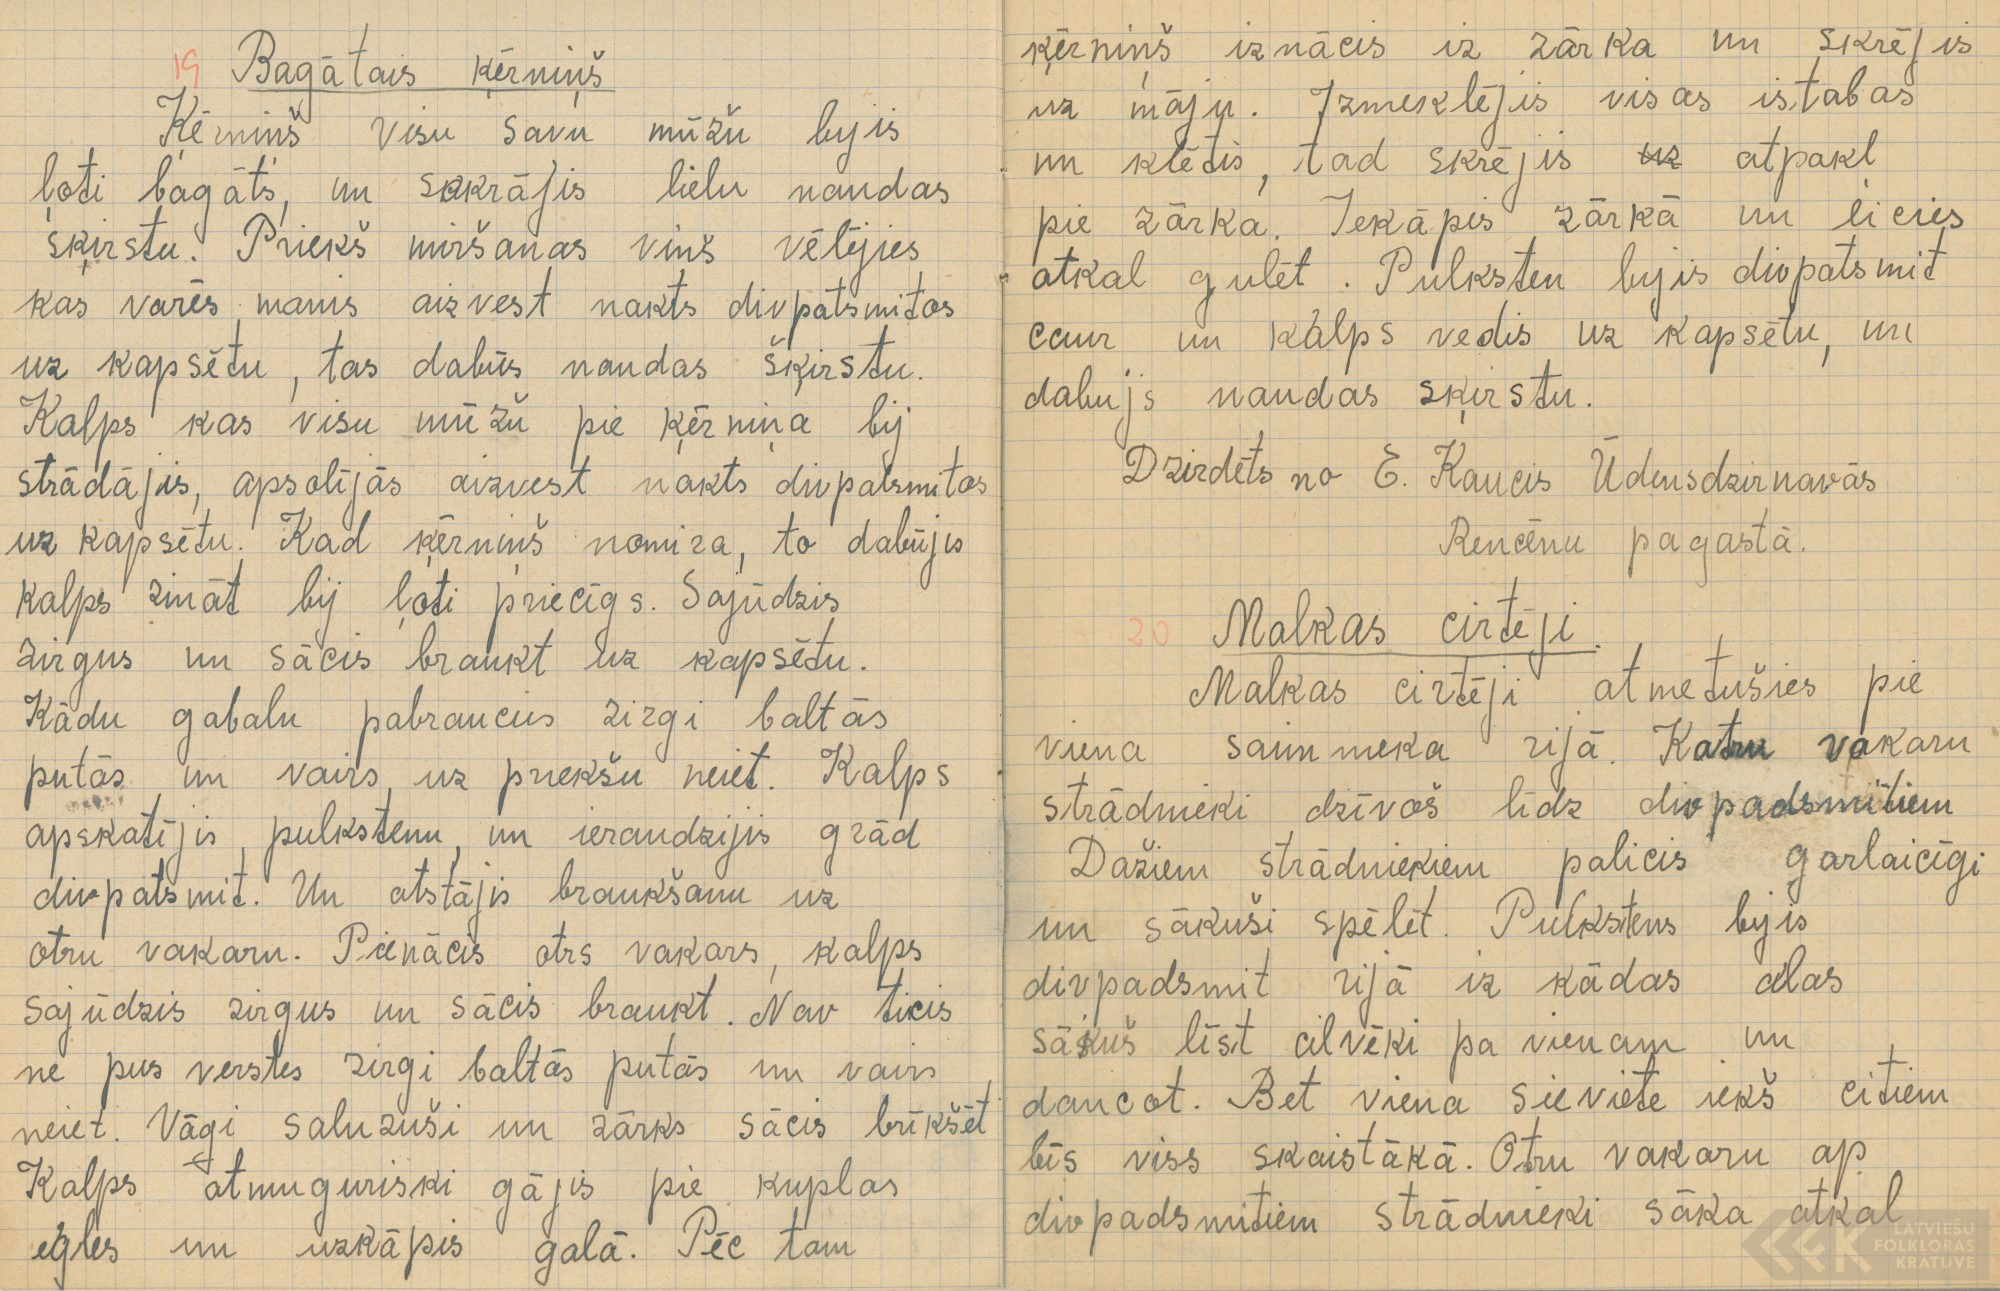 19 Bagātais ķērniņš
Ķērniņš visu savu mūžu byjis
ļoti bagāts, un sakrājis lielu naudas
šķirstu. Priekš miršanas viņš vēlējies
kas varēs manis aizvest nakts divpatsmitos
uz kapsētu, tas dabūs naudas šķirstu.
Kalps kas visu mūžu pie ķērniņa bij
strādājis, apsolījās aizvest nakts divpatsmitos
uz kapsētu. Kad ķērniņš nomira, to dabūjis
kalps zināt bij ļoti priecīgs. Sajūdzis
zirgus un sācis braukt uz kapsētu.
Kādu gabalu pabraucis zirgi baltās
putās un vairs uz priekšu neiet. Kalps
apskatījis pulkstenu, un ieraudzijis grād
divpatsmit. Un atstājis braukšanu uz
otru vakaru. Pienācis otrs vakars, kalps
sajūdzis zirgus un sācis braukt. Nav ticis
ne pus verstes zirgi baltās putās un vairs
neiet. Vāgi saluzuši un zārks sācis brīkšēt
Kalps atmuguriski gājis pie kuplas
egles un uzkāpis galā. Pēc tam
ķērniņš iznācis iz zārka un skrējis
uz māju. Izmeklējis visas istabas
un klētis, tad skrējis uz atpakļ
pie zārka. Iekāpis zārkā un licies
atkal gulēt. Pulksten byjis divpatsmit
caur un kalps vedis uz kapsētu, un
dabujs naudas šķirstu.
Dzirdēts no E. Kaucis Ūdensdzirnavās
Rencēnu pagastā.
20 Malkas cirtēji.
Malkas cirtēji atmetušies pie
viena saimneka rijā. Katru vakaru
strādnieki dzīvoš līdz divpadsmitiem
Dažiem strādniekiem palicis garlaicīgi
un sākuši spēlēt. Pulkstens byjis
divpadsmit rijā iz kādas alas
sākuš līst cilvēki pa vienam un
dancot. Bet viena sieviete iekš citiem
bīs viss skaistākā. Otru vakaru ap
divpadsmitiem strādnieki sāka atkal
LATVIEŠU
FOLKLORAS
KRĀTUVE